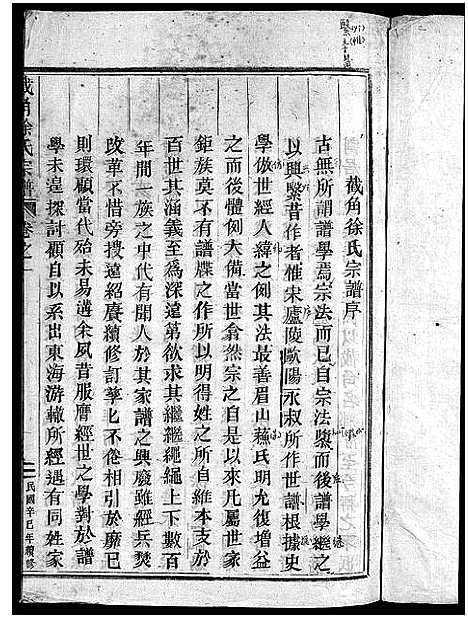 截角徐氏宗譜序
古無所謂譜學焉宗法而已自宗法隳而後譜學繼之
以興繄昔作者惟宋廬陵歐陽永叔所作世譜根據史
學倣世經人緯之例其法最善眉山蘓氏明允復增益
之而後體例大備當世翕然宗之自是以來凡屬世家
鉅族莫不有譜牒之作所以明得姓之所自維本支於
百世其涵義至爲深遠第欲求其繼繼繩繩上下數百
年間一族之中代有聞人於其家譜之興廢雖經兵燹
改革不惜旁搜遠紹賡續修訂孳匕不倦相引於靡已
則環顧當代殆未易遘余夙昔服膺經世之學對於譜
學未遑探討顧自以系出東海游轍所經遇有同姓家
截角徐氏宗譜
卷之一
民國辛巳年續修